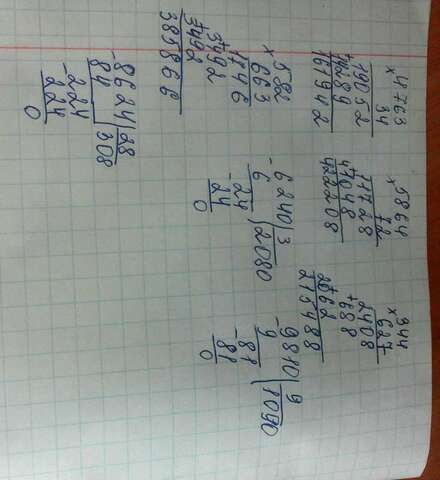 4763
× 34
19052
+14289
161942
5864
× 72
11728
+41048
422208
344
× 627
2408
+688
215488
582
× 663
1746
+3492
3492
385866
-6240|3
6 |2080
-24
24
0
-9810|9
9 |1090
-81
81
0
-8624|28
84 |308
-224
224
0